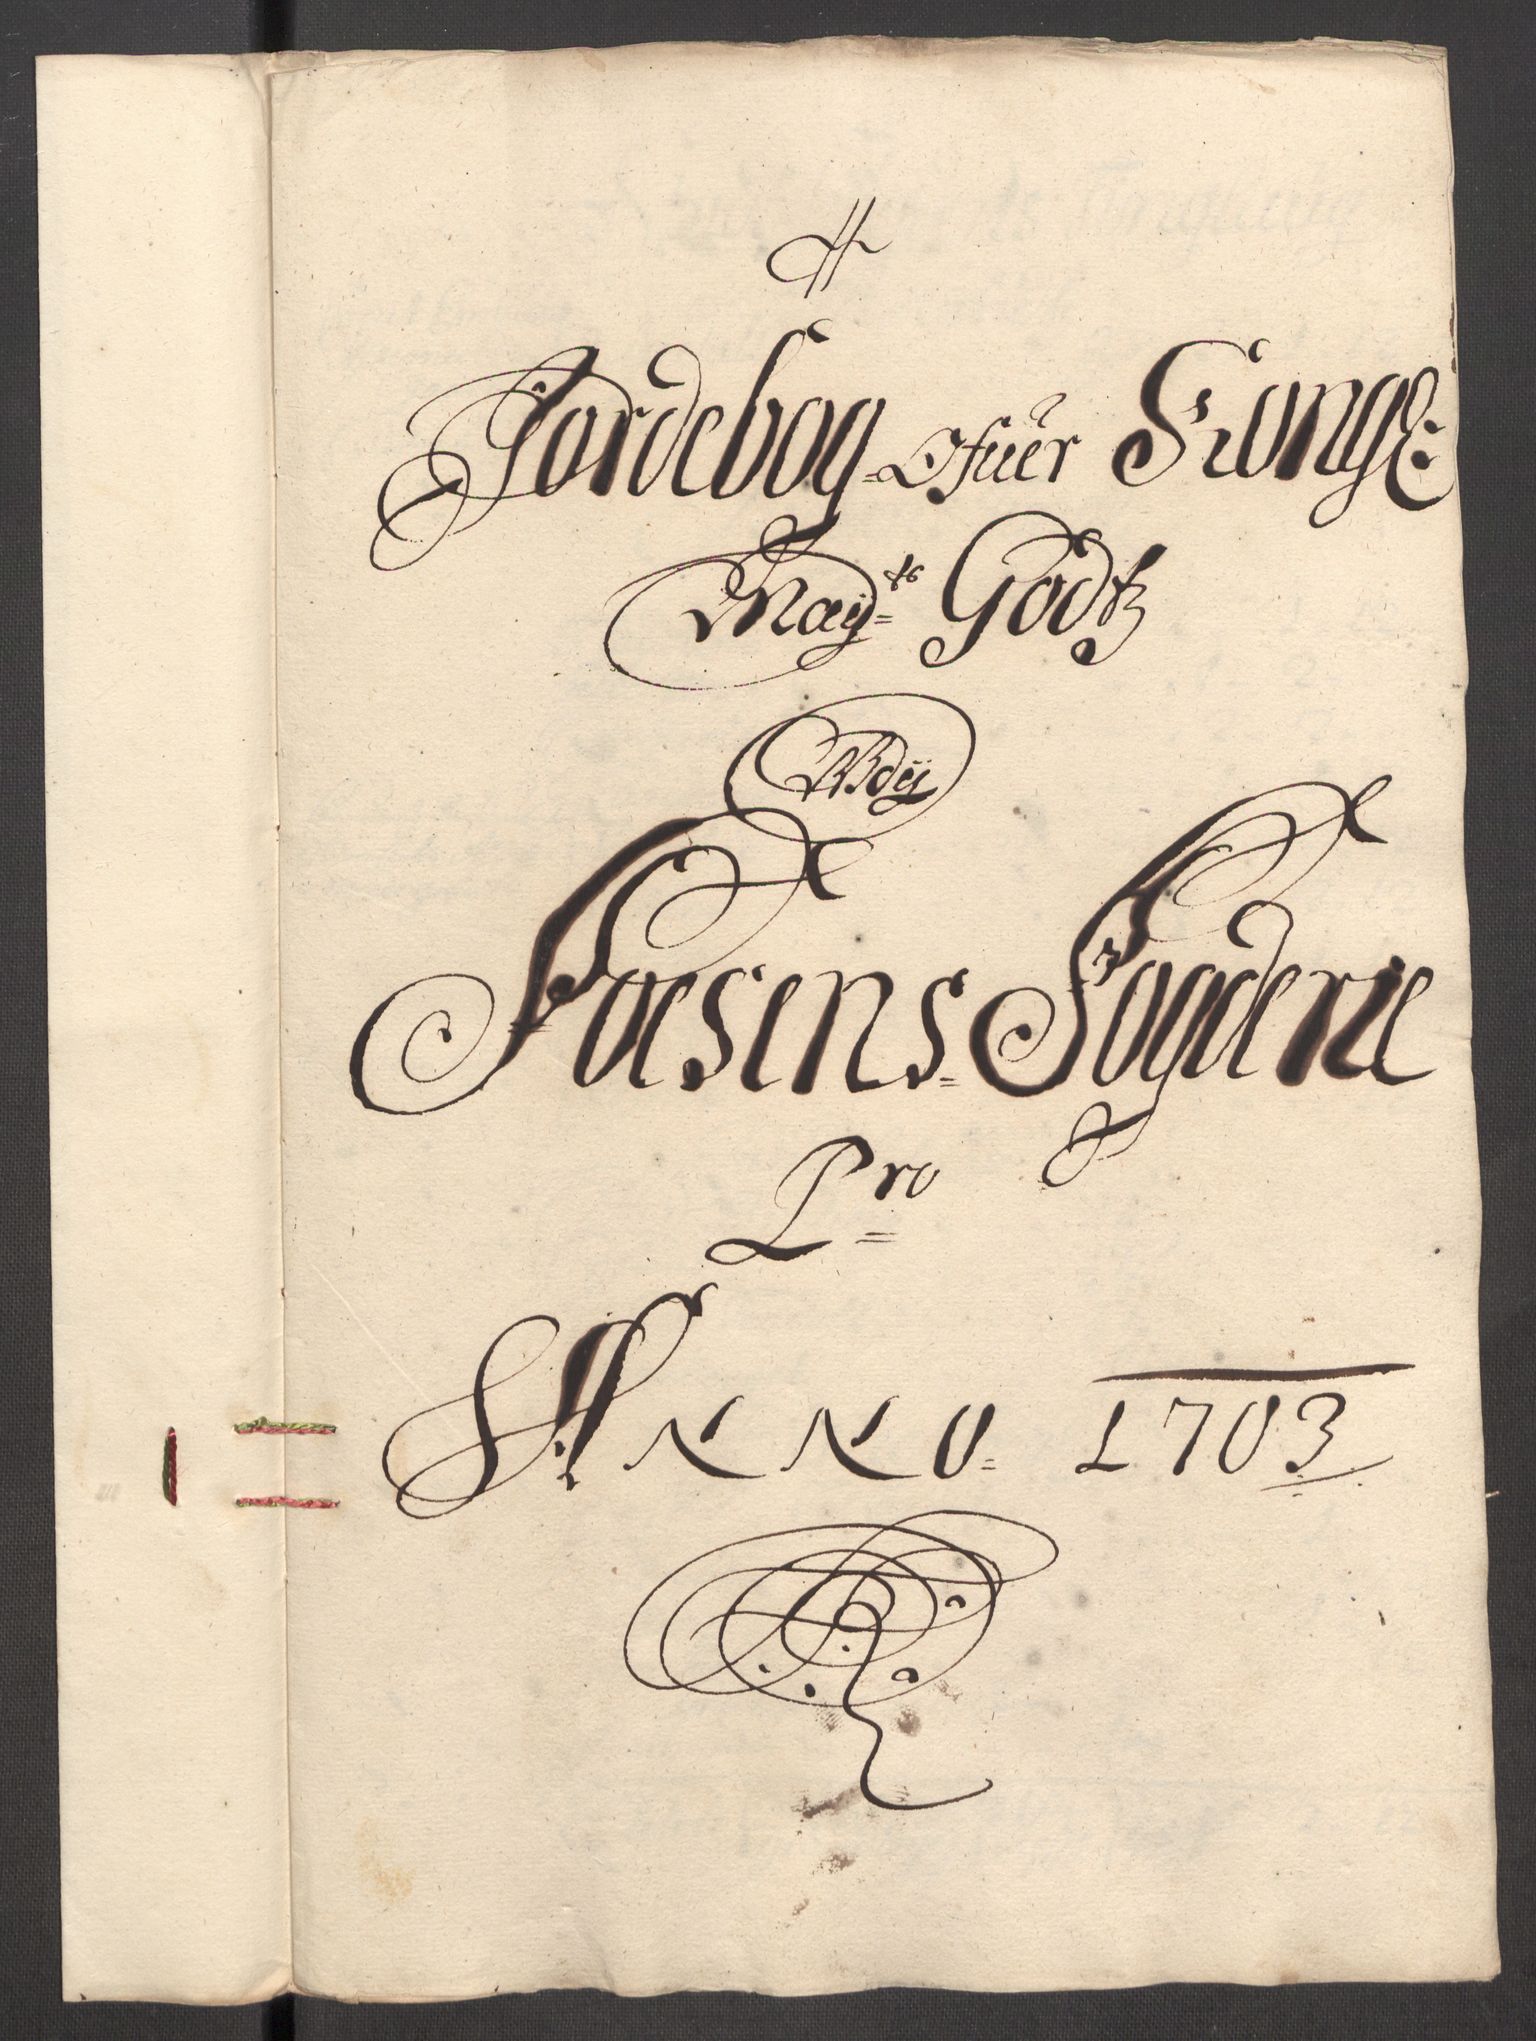 Jordebog Ofuer Kongl:
May:ts Godtz
Udj
Foesens Fogderie
Pro
ANNO 1703